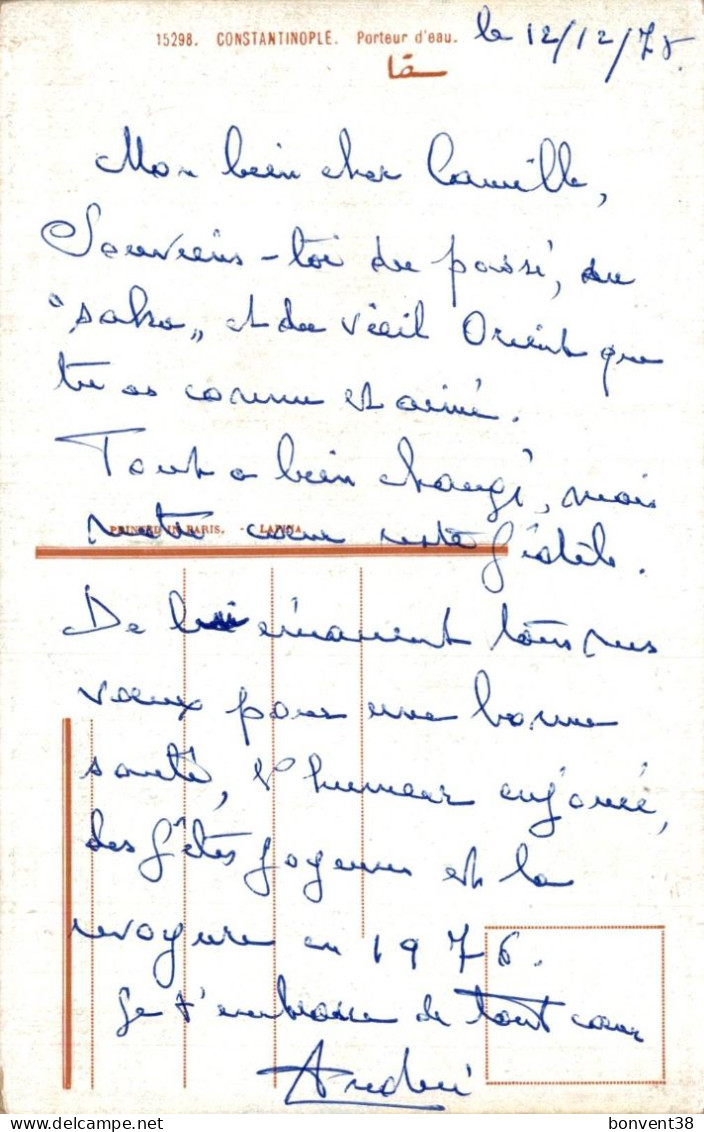 15298. CONSTANTINOPLE. Porteur d'eau. le 12/12/75.
سقا
Mon bien cher Camille,
Souviens-toi du passé, du
"saka" et du vieil Orient que
tu as connu et aimé.
Tout a bien changé, mais
PRINTED IN PARIS. - LAPINA.
notre cœur reste fidèle.
De lui émanent tous nos
vœux pour une bonne
santé, l'humeur enjouée,
des fêtes joyeuses et la
revoyure en 1976.
Je t'embrasse de tout cœur
André
bonvent38